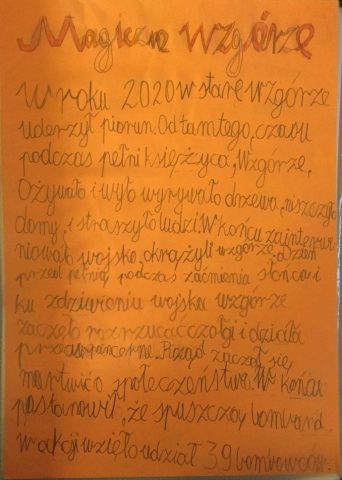 Magiczne wzgórze
W roku 2020 w stare wzgórze
uderzył piorun. Od tamtego, czasu
podczas pełni księżyca, Wzgórze,
Ożywało i wyło wyrywało drzewa, niszczyło
domy, i straszyło ludzi. W końcu zainterwe
niowało wojsko, okrążyli wzgórze, dzień
przed pełnią, podczas zaćmienia słońca i
ku zdziwieniu wojska wzgórze
zaczęło rozrzucać czołgi i działa
przeciwpancerne. Rząd zaczął się
martwić o społeczeństwo. W końcu
postanowił, że spuszczą bombard.
w akcji wzięło udział 39 bombowców.